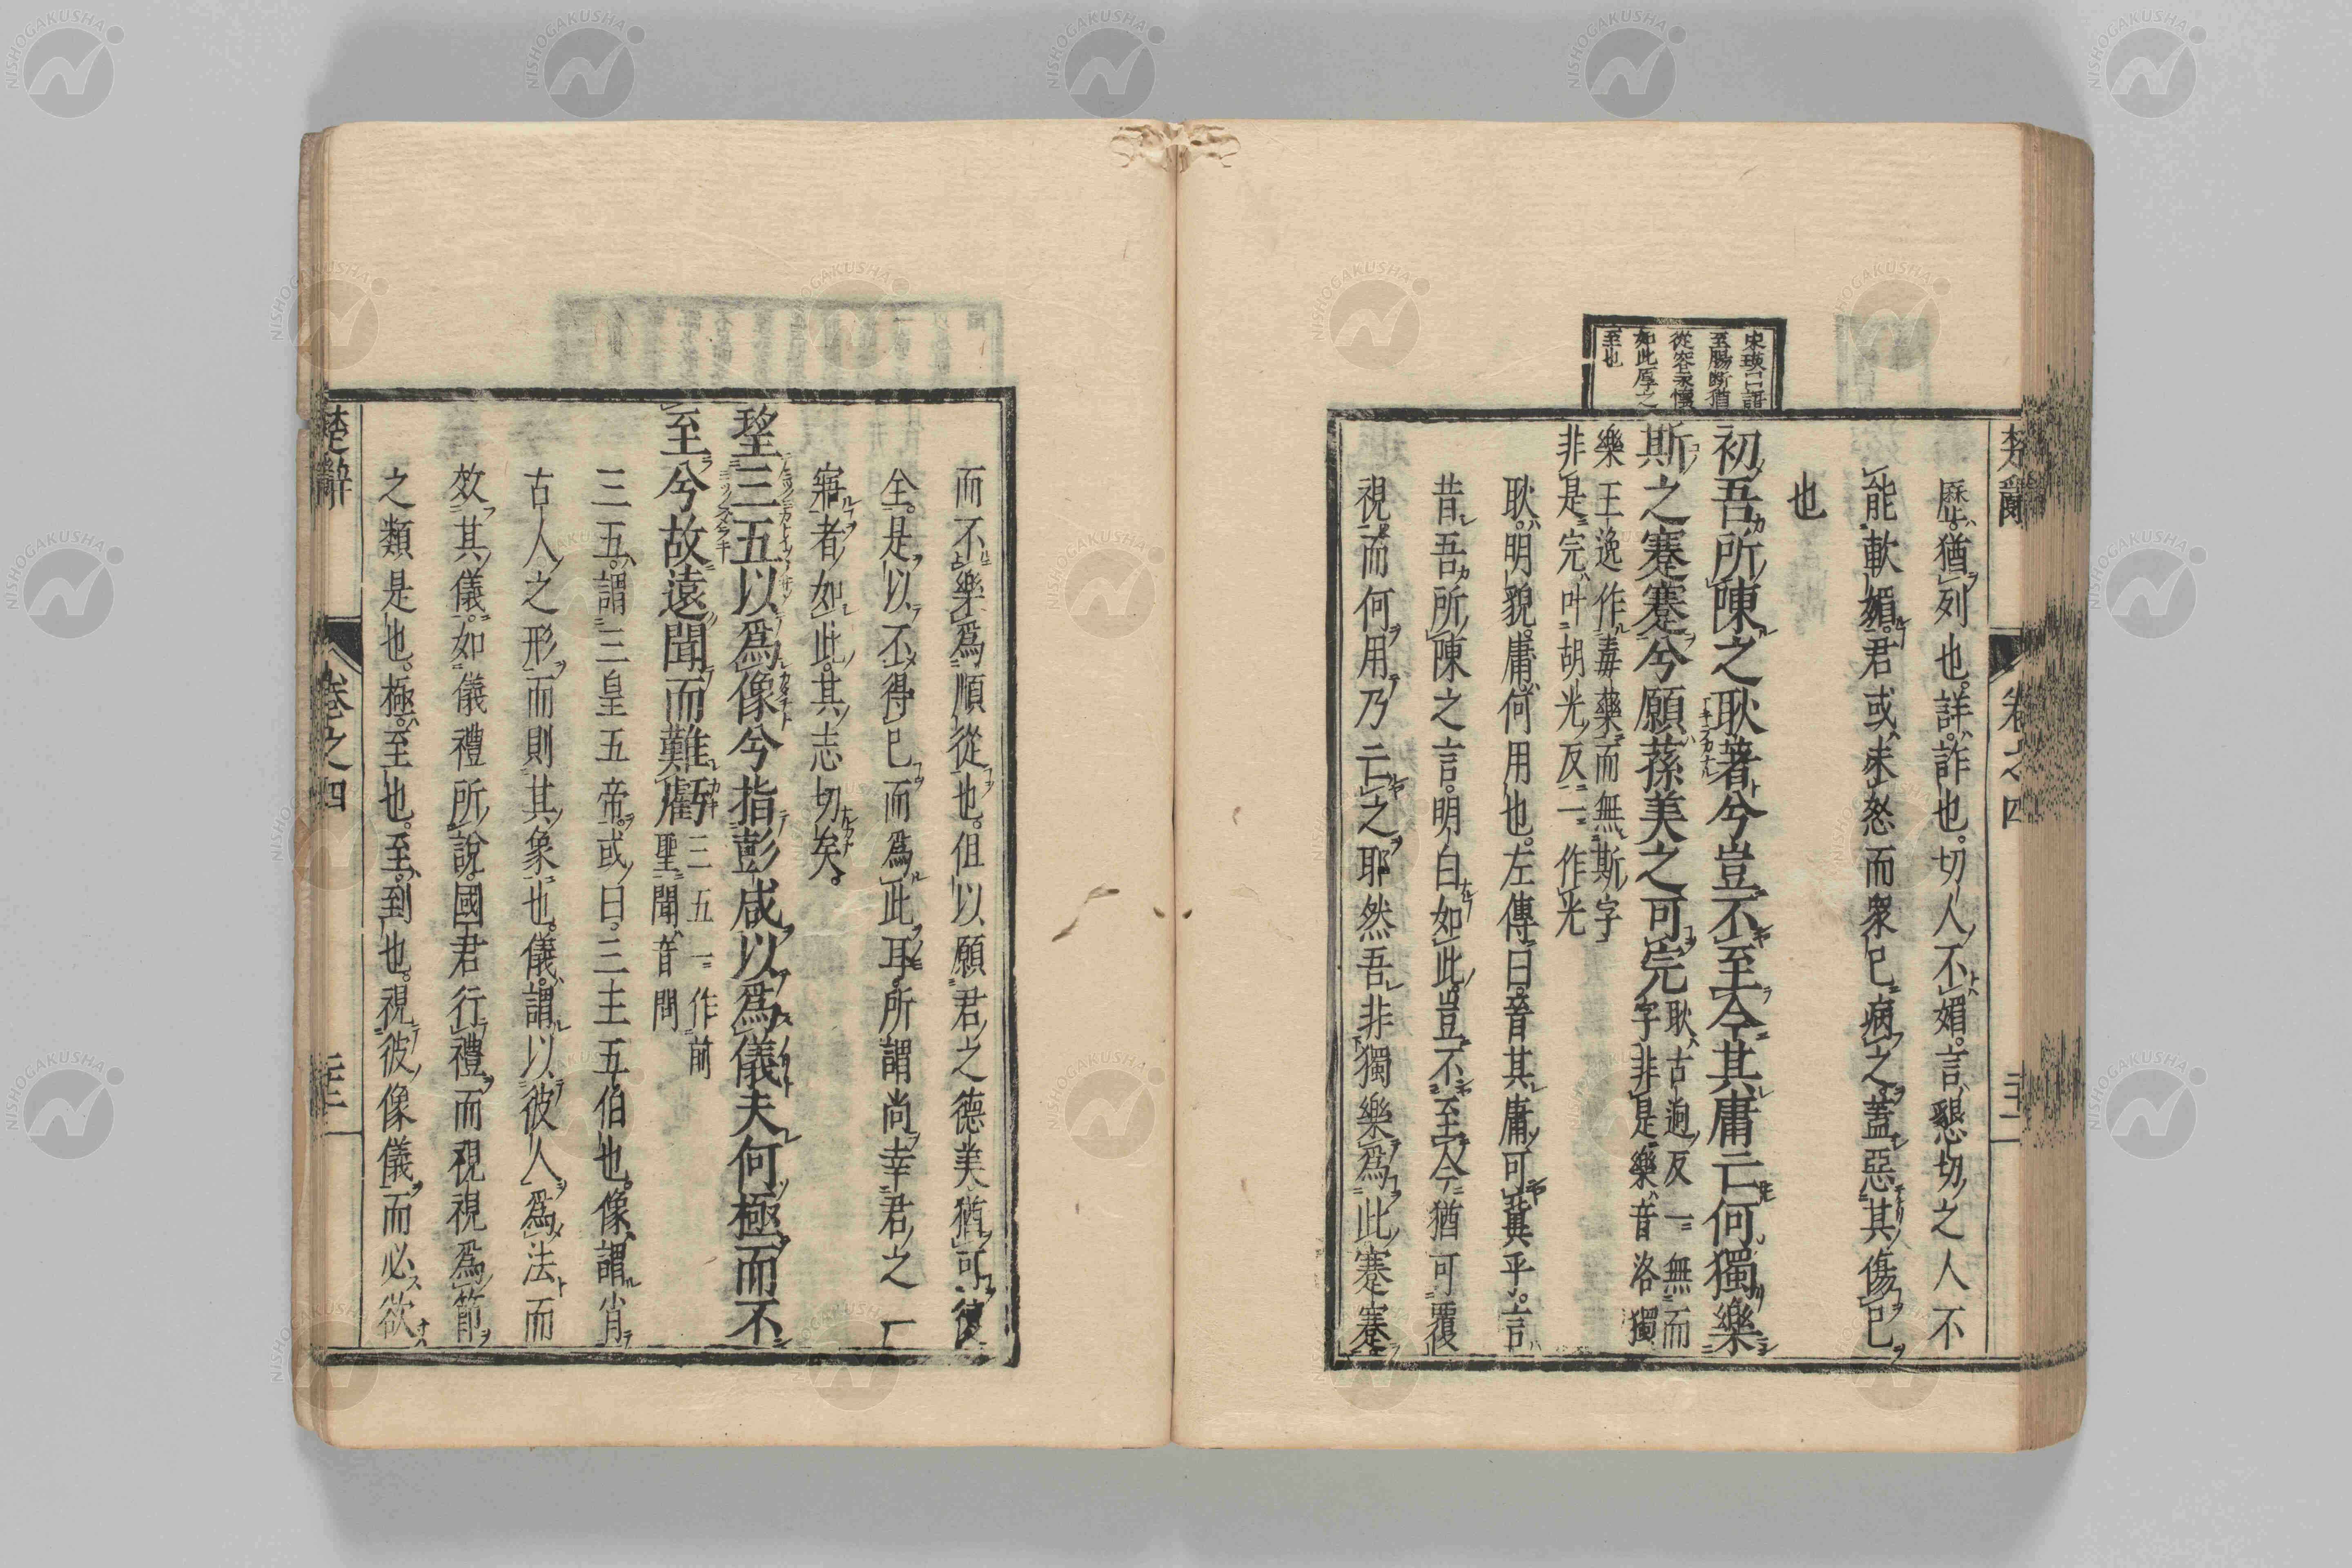 楚辭 卷之四
歷。猶列也。詳。詐也。切人不媚。言懇切之人不
能軟媚。君或未怒而衆已病之。蓋惡其傷已
也
初吾所陳之耿著兮豈不至今其庸亡何獨樂
斯之蹇蹇兮願蓀美之可完
耿古逈反一無而
字非是樂音洛獨
樂王逸作毒藥而無斯字
非是完叶胡光反一作光
耿。明貌。庸。何用也。左傳曰。晉其庸可冀乎。言
昔吾所陳之言。明白如此。豈不至今猶可覆
視。而何用乃亡之耶然吾非獨樂爲此蹇蹇
至腸斷猶
從容永懷
如此厚之
至也
而不樂爲順從也。但以願君之德美猶可復
全。是以不得已而爲此耳。所謂尚幸君之一
寤者如此。其志切矣。
望三五以爲像兮指彭咸以爲儀夫何極而不
至兮故遠聞而難虧
三五一作前
聖聞音問
三五。謂三皇五帝。或曰。三王五伯也。像。謂肖
古人之形而則其象也。儀。謂以彼人爲法而
效其儀。如儀禮所說。國君行禮而視視爲節
之類是也。極。至也。至。到也。視彼像儀而必欲
楚辭 卷之四